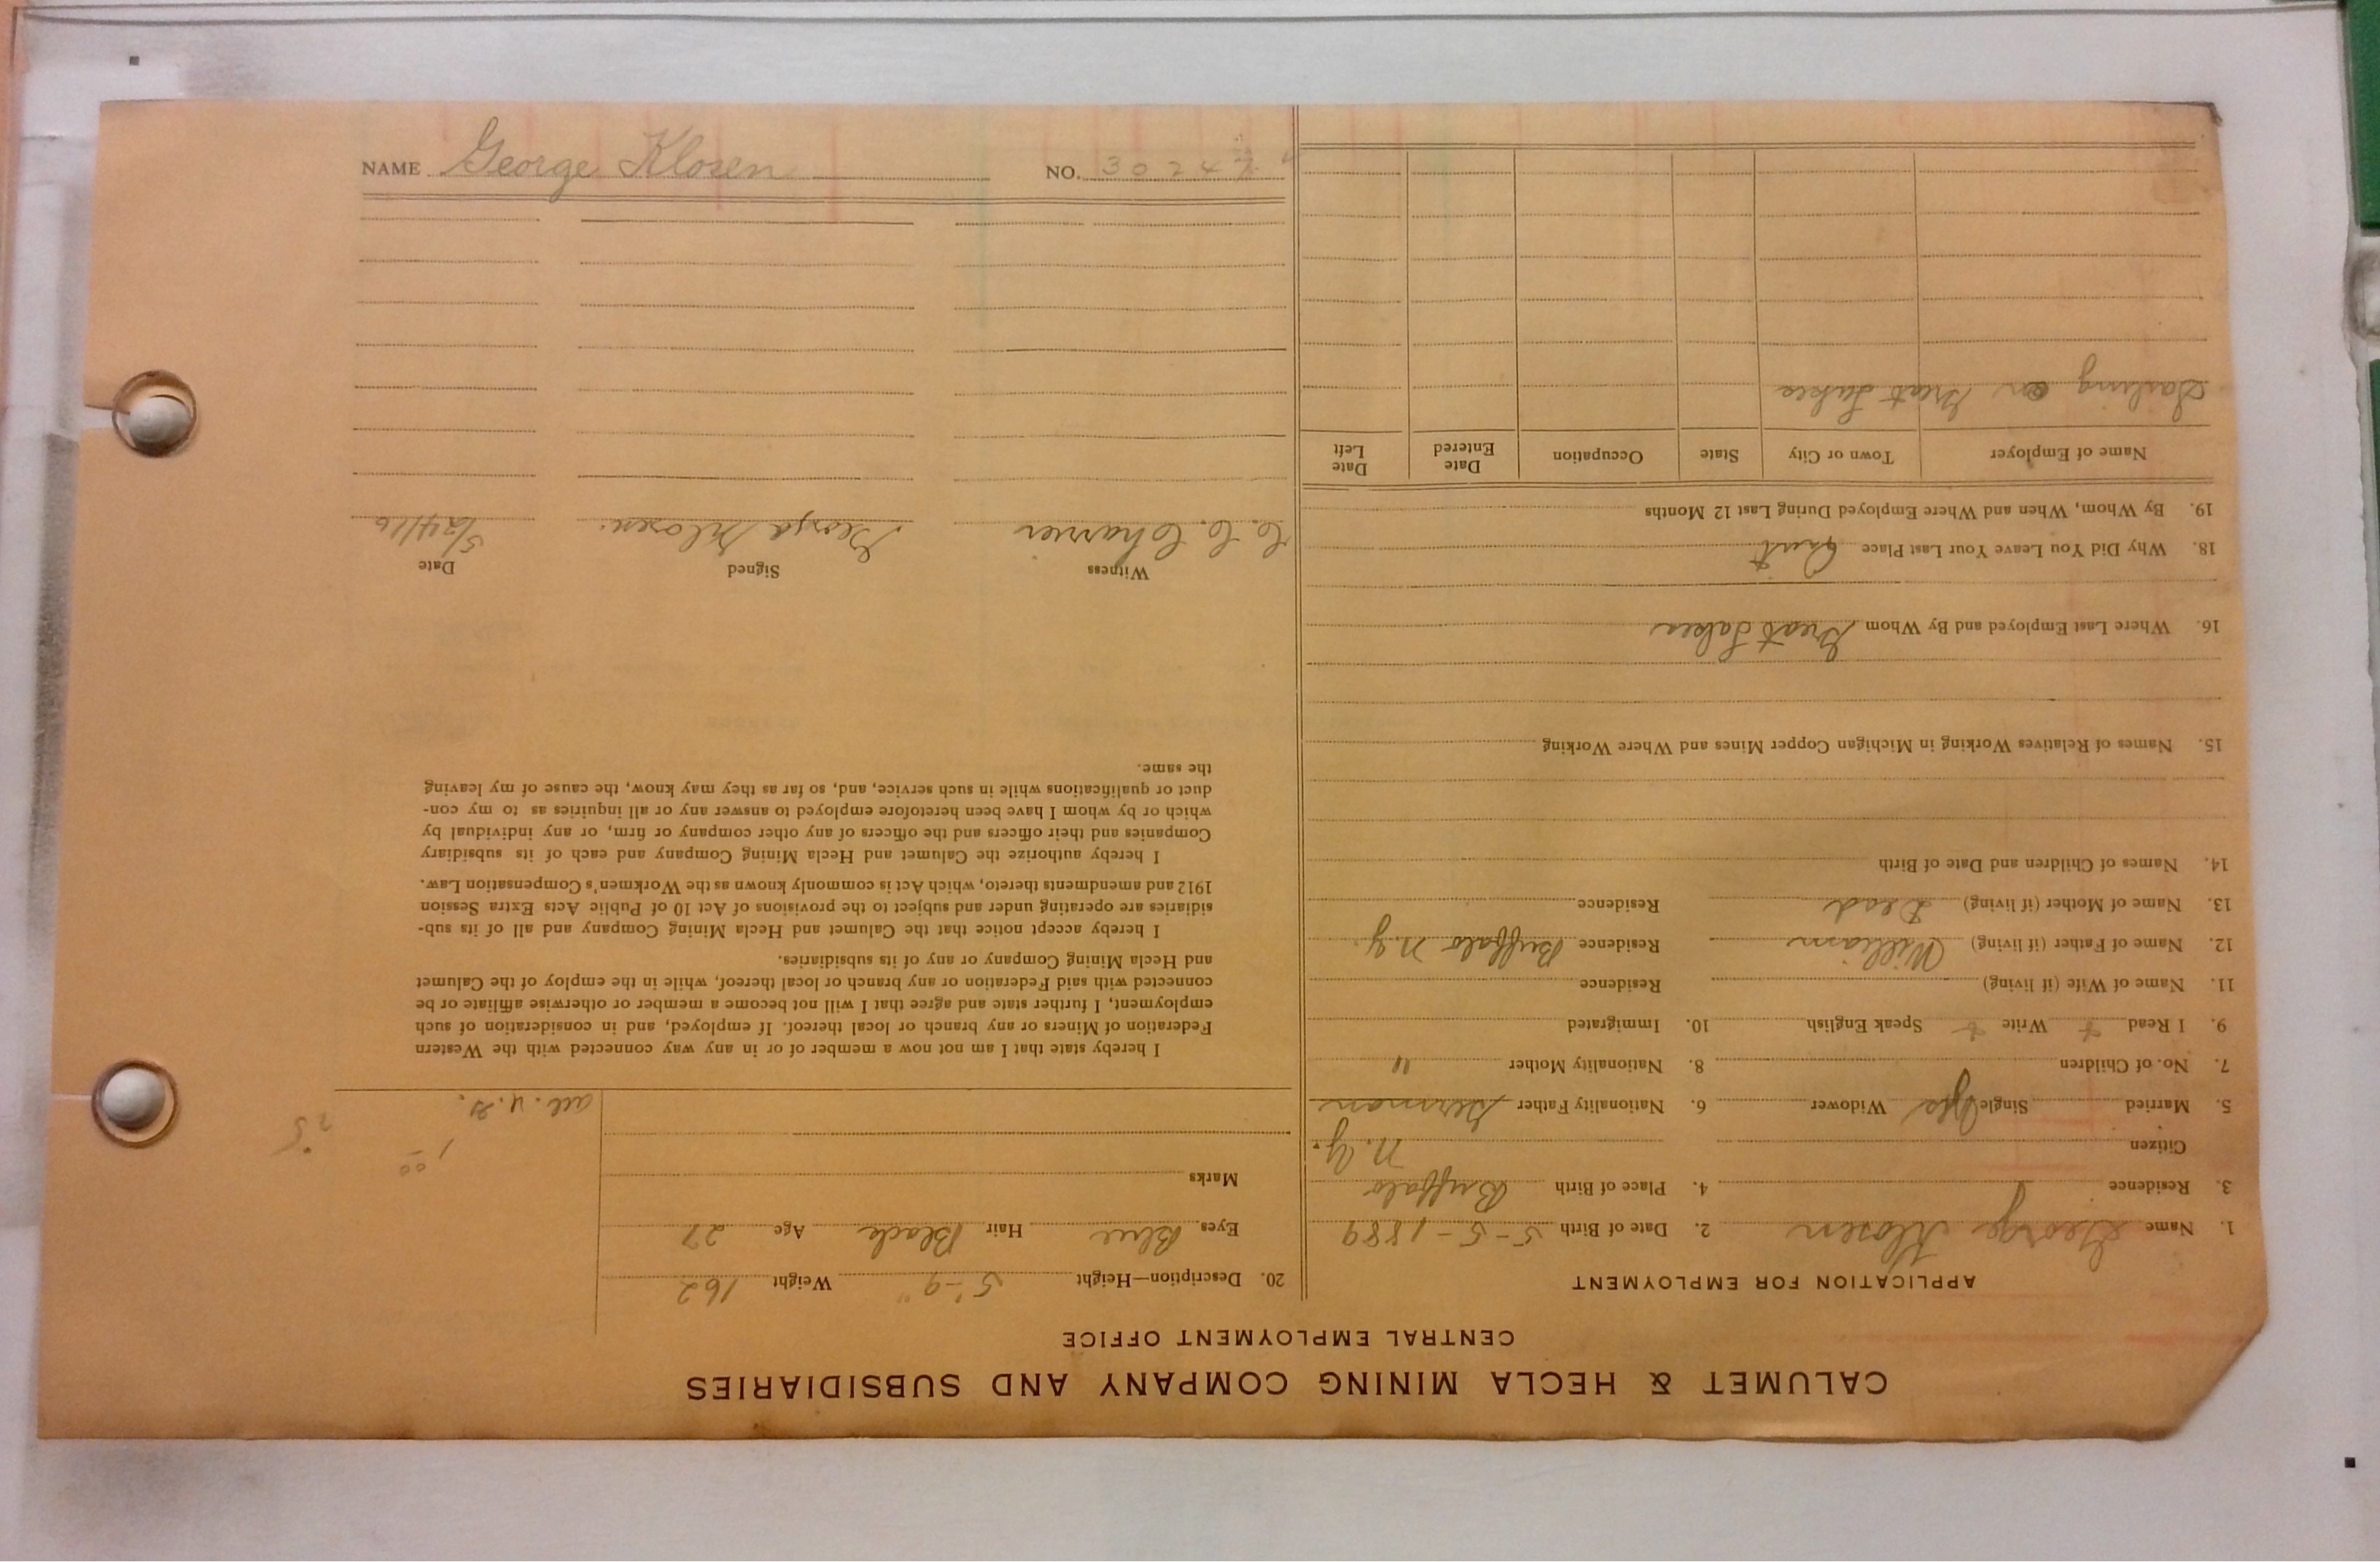 CALUMET & HECLA MINING COMPANY AND SUBSIDIARIES
CENTRAL EMPLOYMENT OFFICE
APPLICATION FOR EMPLOYMENT
1. Name George Klosen 2. Date of Birth 5-5-1889
3. Residence 4. Place of Birth Buffalo
Citizen N.Y.
5. Married Single Widower 6. Nationality Father German
7. No. of Children 8. Nationality Mother "
9. I Read Write Speak English 10. Immigrated
11. Name of Wife (if living) Residence
12. Name of Father (if living) William Residence Buffalo N.Y.
13. Name of Mother (if living) Dead Residence
14. Names of Children and Date of Birth
15. Names of Relatives Working in Michigan Copper Mines and Where Working
16. Where Last Employed and By Whom Great Lakes
18. Why Did You Leave Your Last Place Quit
19. By Whom, When and Where Employed During Last 12 Months
Name of Employer Town or City State Occupation Date Entered Date Left
Sailing on Great Lakes
20. Description—Height 5'-9" Weight 162
Eyes Blue Hair Black Age 27
Marks
1.00
I hereby state that I am not now a member of or in any way connected with the Western
Federation of Miners or any branch or local thereof. If employed, and in consideration of such
employment, I further state and agree that I will not become a member or otherwise affiliate or be
connected with said Federation or any branch or local thereof, while in the employ of the Calumet
and Hecla Mining Company or any of its subsidiaries.
I hereby accept notice that the Calumet and Hecla Mining Company and all of its sub-
sidiaries are operating under and subject to the provisions of Act 10 of Public Acts Extra Session
1912 and amendments thereto, which Act is commonly known as the Workmen's Compensation Law.
I hereby authorize the Calumet and Hecla Mining Company and each of its subsidiary
Companies and their officers and the officers of any other company or firm, or any individual by
which or by whom I have been heretofore employed to answer any or all inquiries as to my con-
duct or qualifications while in such service, and, so far as they may know, the cause of my leaving
the same.
Witness Signed Date
C. C. Charrier George Klosen. 5/24/16
NAME George Klosen NO. 30247